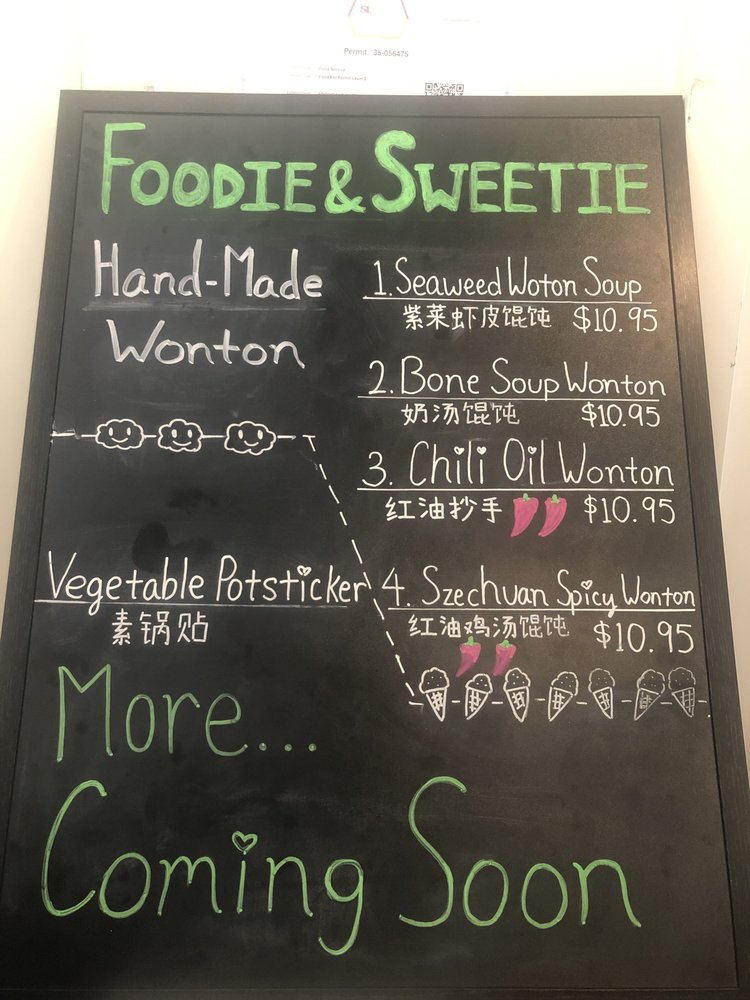 Permit 35-056475
FOODIE & SWEETIE
Hand-Made
Wonton
1. Seaweed Woton Soup
紫菜虾皮馄饨 $10.95
2. Bone Soup Wonton
奶汤馄饨 $10.95
3. Chili Oil Wonton
红油抄手 $10.95
4. Szechuan Spicy Wonton
红油鸡汤馄饨 $10.95
Vegetable Potsticker
素锅贴
More...
Coming Soon